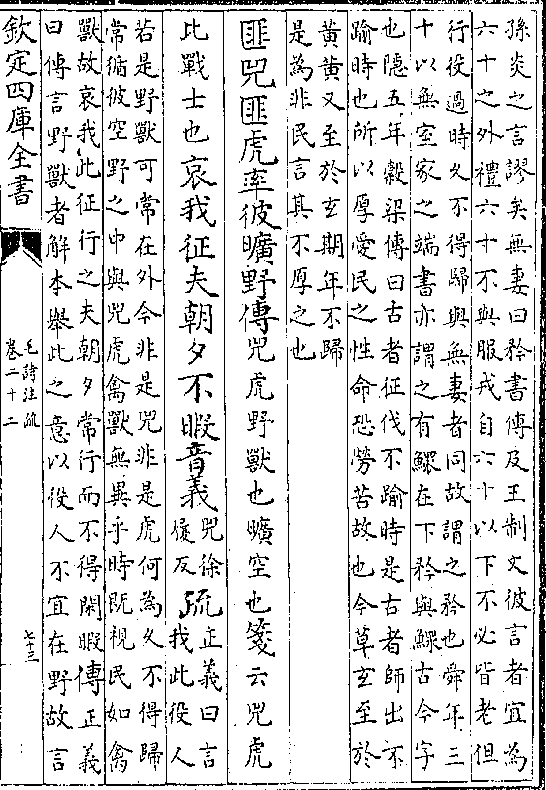 孫炎之言謬矣無妻曰矜書傳及王制文彼言者宜為
六十之外禮六十不與服戎自六十以下不必皆老但
行役過時久不得歸與無妻者同故謂之矜也舜年三
十以無室家之端書亦謂之有鰥在下矜與鰥古今字
也隱五年穀梁傳曰古者征伐不踰時是古者師出不
踰時也所以厚愛民之性命恐勞苦故也今草玄至於
黃黃又至於玄期年不歸
是為非民言其不厚之也
匪兕匪虎率彼曠野傳兕虎野獸也曠空也箋云兕虎
比戰士也哀我征夫朝夕不暇音義兕徐
履反疏正義曰言
我此役人
若是野獸可常在外今非是兕非是虎何為久不得歸
常循彼空野之中與兕虎禽獸無異乎時既視民如禽
獸故哀我此征行之夫朝夕常行而不得閑暇傳正義
曰傳言野獸者解本舉此之意以役人不宜在野故言
欽定四庫全書
毛詩注疏
卷二十二
七十三